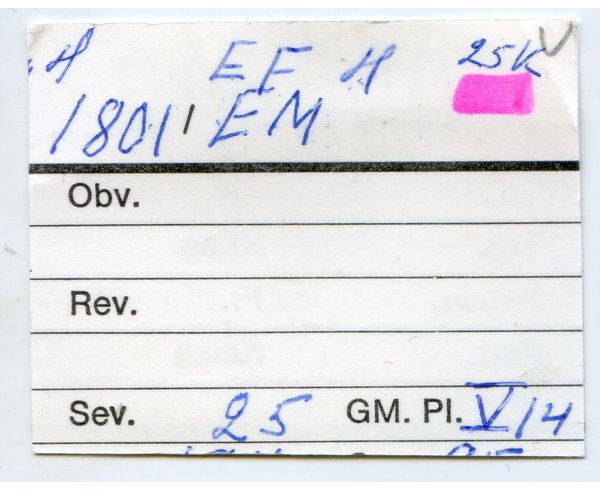 H EF H 25K
1801 EM
Obv.
Rev.
Sev. 25 GM. Pl. V/4